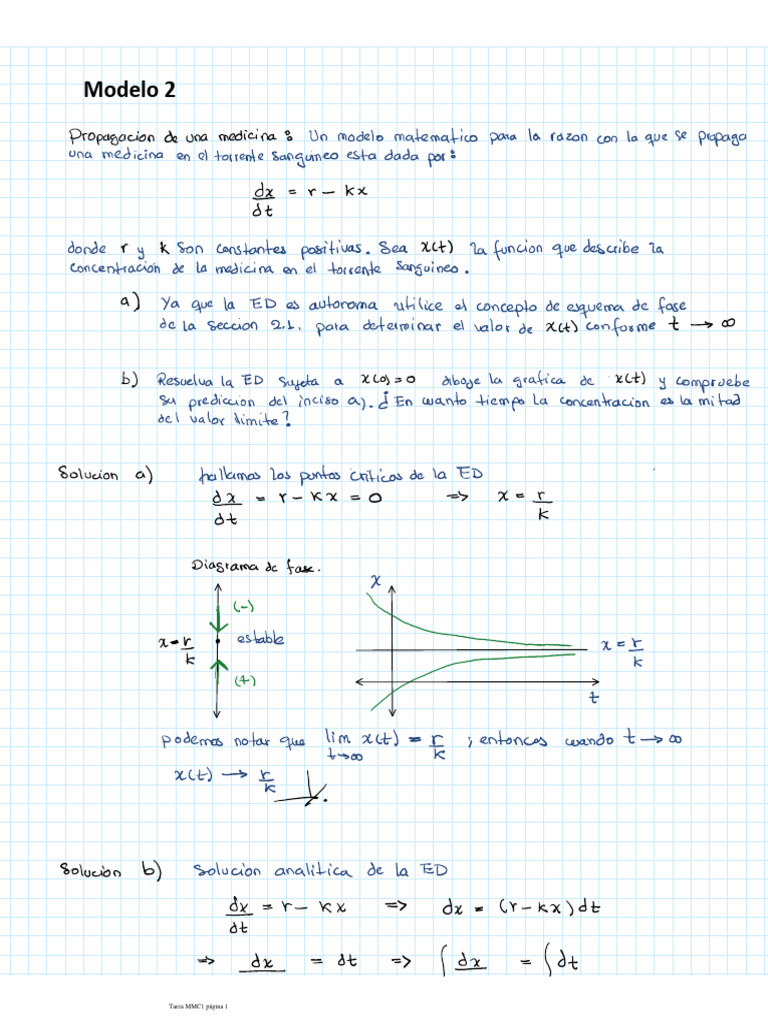 Modelo 2
Propagacion de una medicina: Un modelo matematico para la razon con la que se propaga
una medicina en el torrente sanguineo esta dada por:
dx/dt = r - kx
donde r y k son constantes positivas. Sea x(t) la funcion que describe la
concentración de la medicina en el torrente sanguineo.
a) Ya que la ED es autonoma utilice el concepto de esquema de fase
de la sección 2.1. para determinar el valor de x(t) conforme t → ∞
b) Resuelva la ED sujeta a x(0)=0 dibuje la grafica de x(t) y compruebe
su prediccion del inciso a). ¿En cuanto tiempo la concentración es la mitad
del valor limite?
Solucion a) hallamos los puntos criticos de la ED
dx/dt = r - kx = 0 => x = r/k
Diagrama de fase.
x
(-)
x = r/k estable
x = r/k
(+)
t
podemos notar que lim t→∞ x(t) = r/k ; entonces cuando t → ∞
x(t) → r/k
Solucion b) Solucion analitica de la ED
dx/dt = r - kx => dx = (r - kx) dt
=> dx = dt => ∫ dx = ∫ dt
Tarea MMC1 página 1